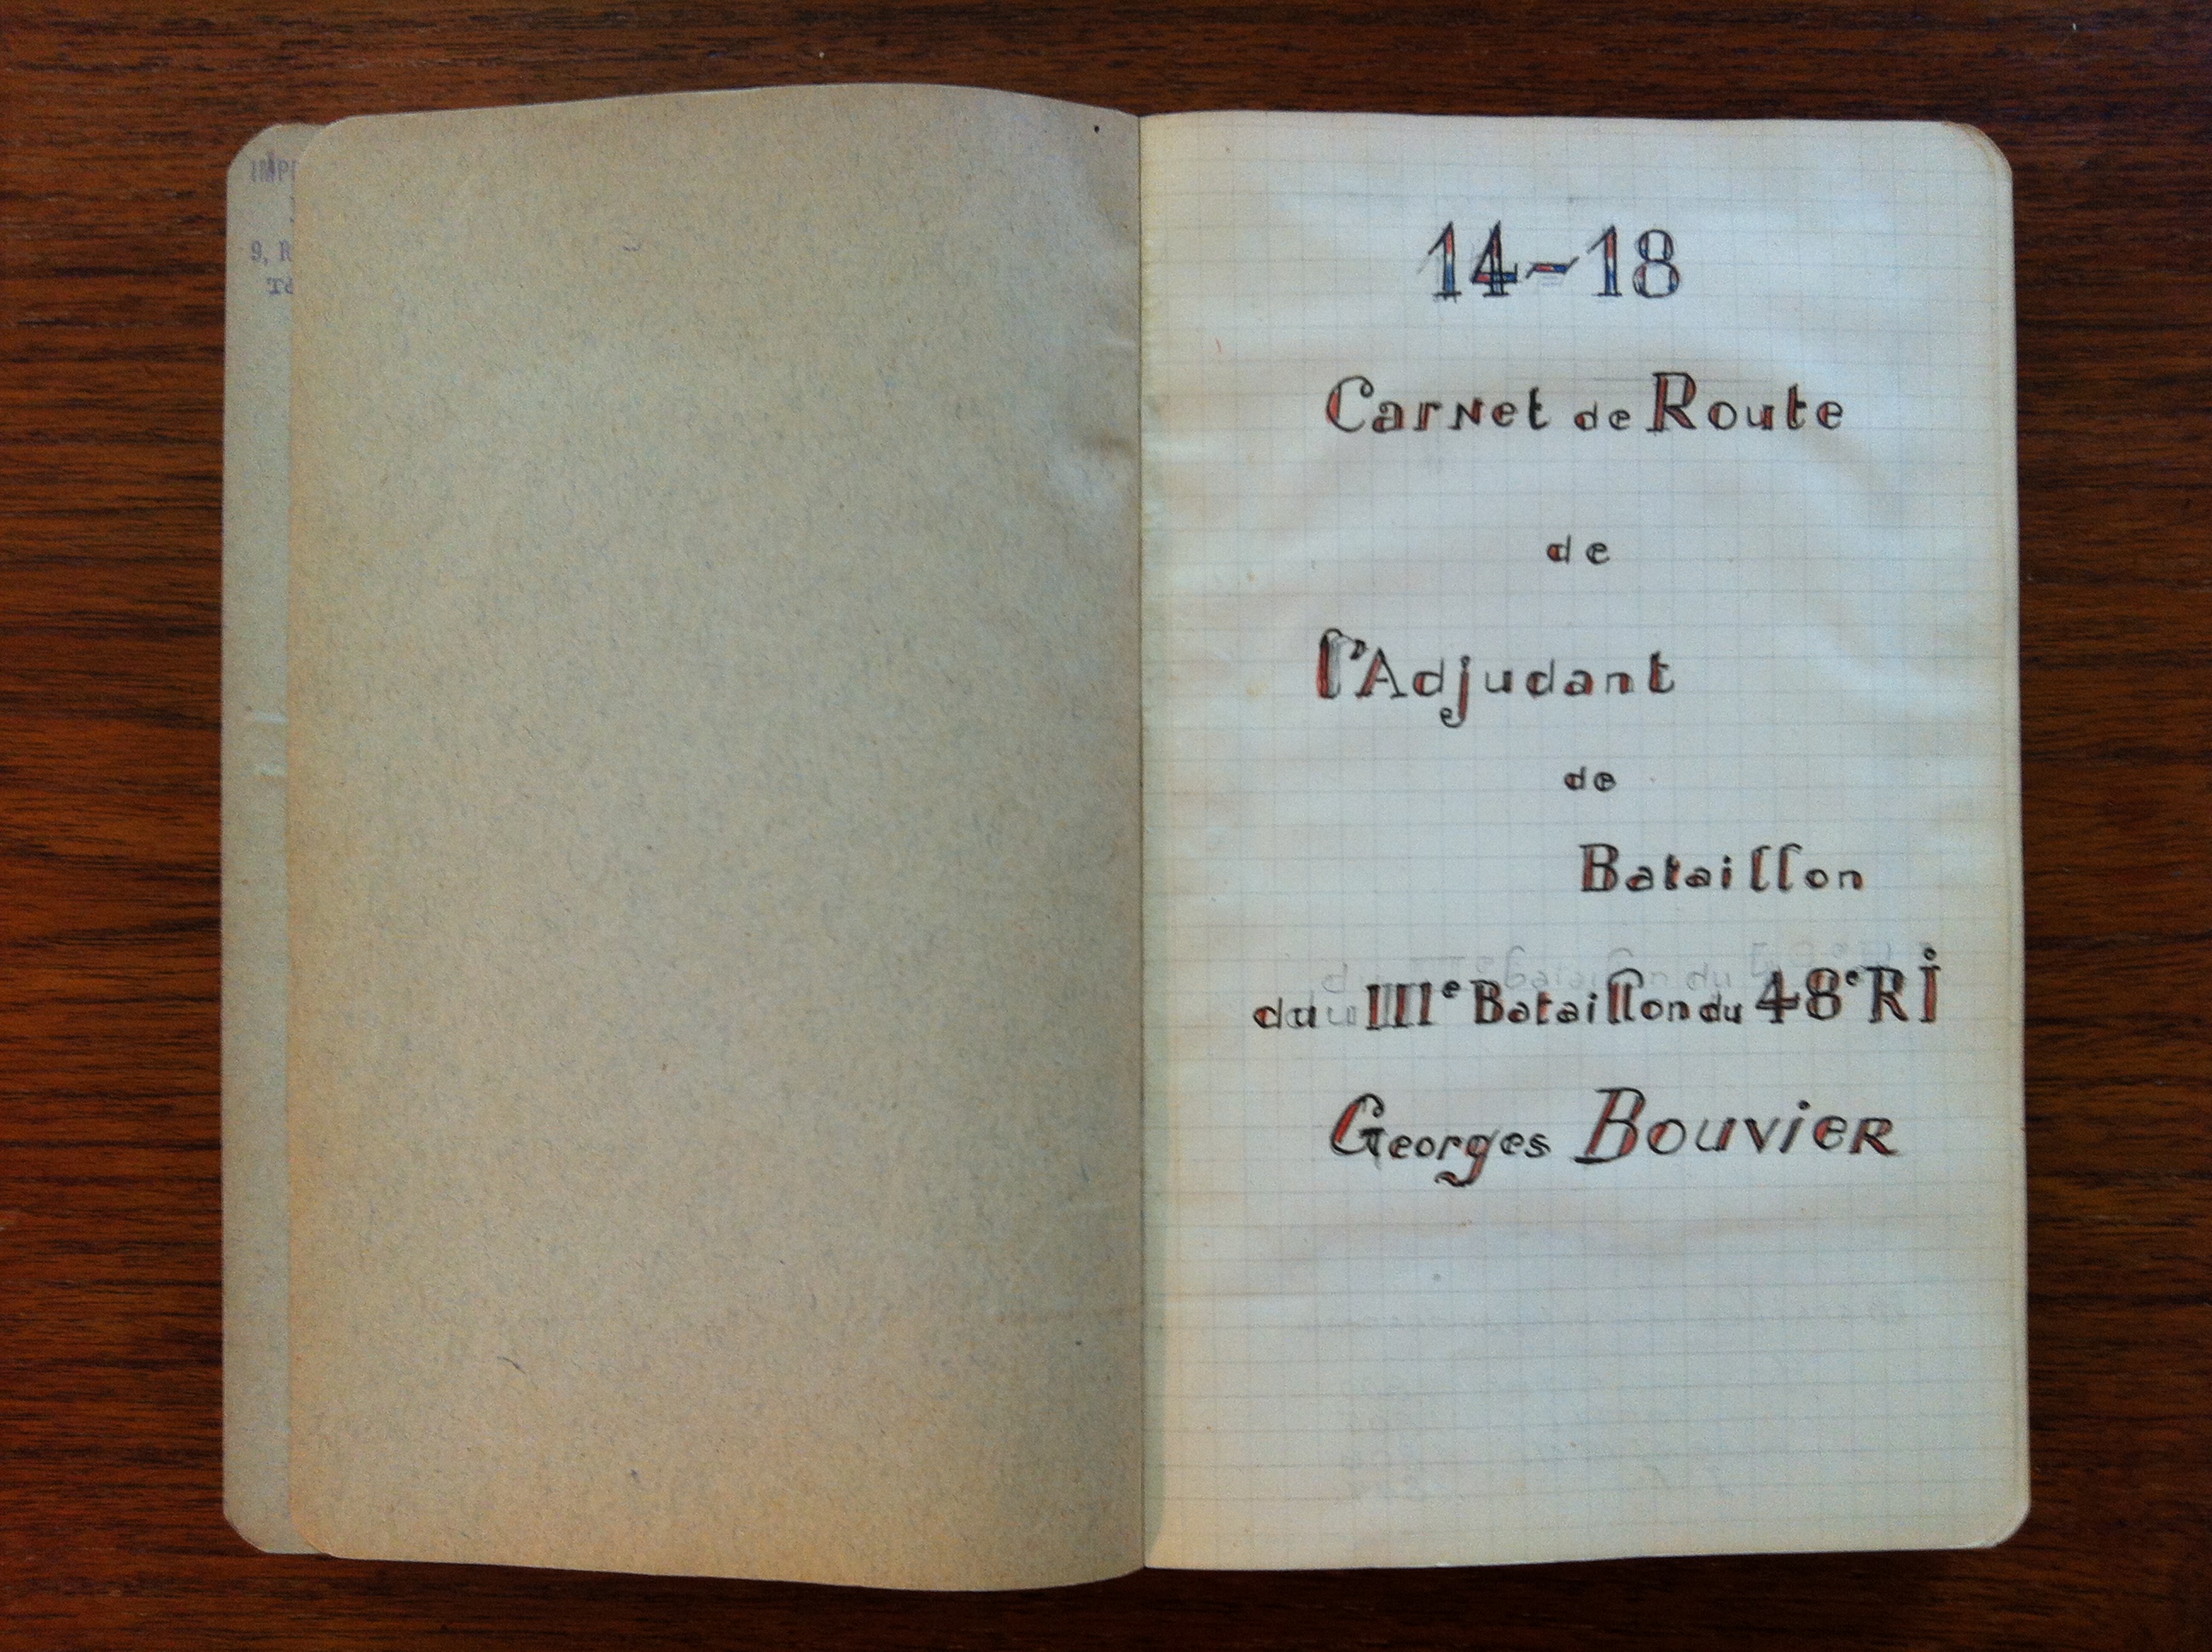 IMP
9, R
14-18
Carnet de Route
de
l'Adjudant
de
Bataillon
du IIIe Bataillon du 48e RI
Georges Bouvier